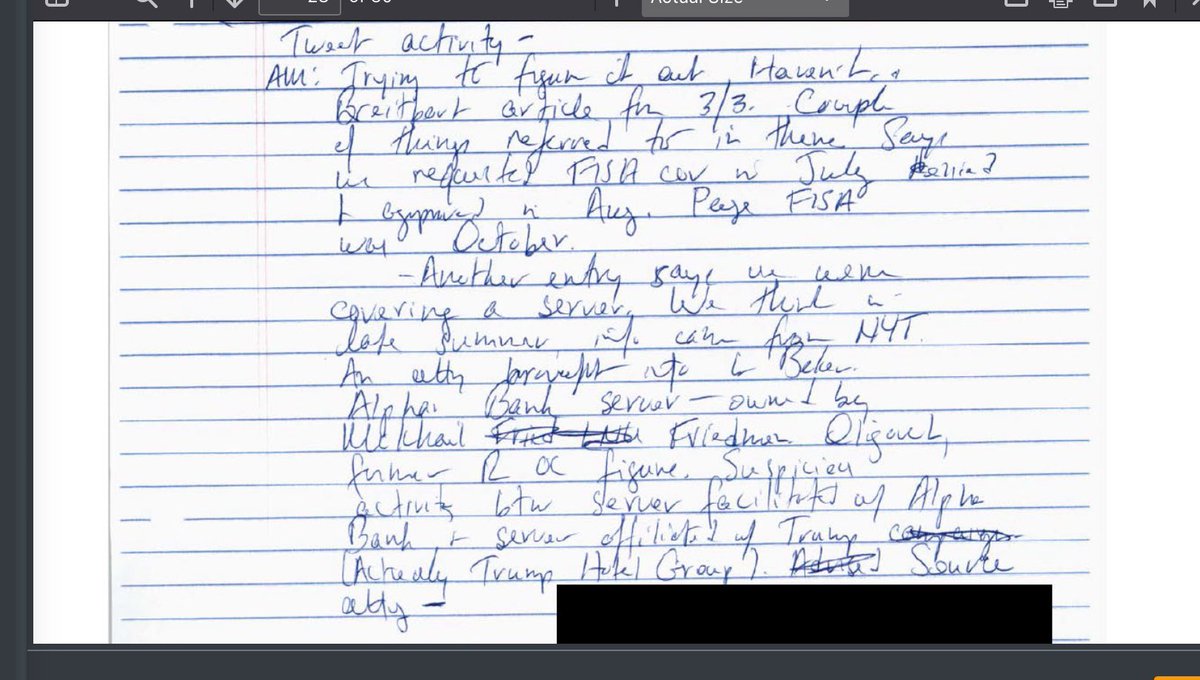 Tweet activity –
AM: Trying to figure it out. Haven't.
Breitbart article fm 3/3. Couple
of things referred to in there. Says
we requested FISA cov in July
+ approved in Aug. Page FISA
was October.
– Another entry says we were
covering a server. We think in
late summer, info came from NYT.
An atty brought info to Baker.
Alpha Bank server – owned by
Mikhail Friedman. Oligarch,
former R OC figure. Suspicious
activity btw server facilitated w/ Alpha
Bank + server affiliated w/ Trump campaign
(Actually Trump Hotel Group). Advised Source
atty –